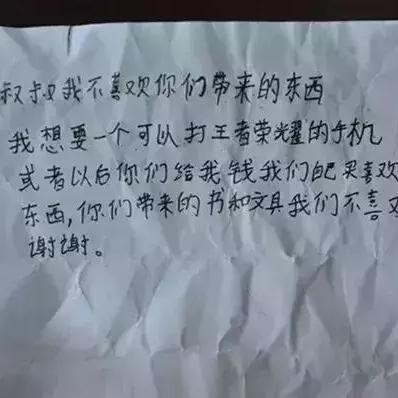 叔叔我不喜欢你们带来的东西
我想要一个可以打王者荣耀的手机
或者以后你们给我钱我们自己买喜欢
东西,你们带来的书和文具我们不喜欢
谢谢。